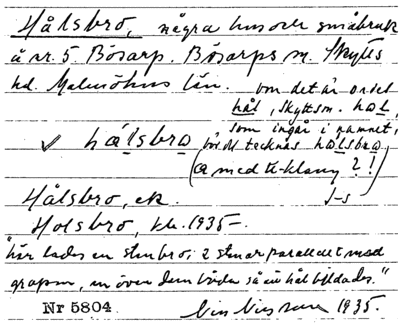 Hålsbro, några hus och småbruk
å nr. 5 Bösarp. Bösarps sn. Skytts
hd. Malmöhus län. om det är ordet
hål, skyttsm. hɑl,
som ingår i namnet,
✓ hálsbro bör det tecknas hɑlsbro
(ɑ med å-klang?!)
J-s
Hålsbro, ek.
Holsbro, kk. 1935-
"här lades en stenbro; 2 stenar parallelt med
graven, en över dem båda så en hål bildades."
Nr 5804 1935.